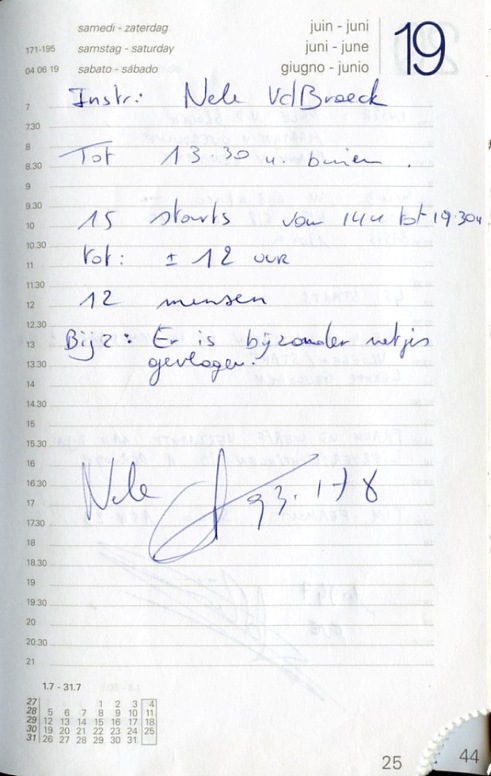 samedi - zaterdag
171-195 samstag - saturday
04 06 19 sabato - sábado
juin - juni
juni - june
giugno - junio
19
Instr: Nele Vd Broeck
7
7.30
8 Tot 13:30 u. binnen.
8.30
9
9.30 15 starts van 14u tot 19:30u
10
10.30 tot: ± 12 uur
11
11.30
12 12 mensen
12.30
13 Bijz: Er is bijzonder netjes
13.30 gevlogen.
14
14.30
15
15.30
16
16.30 Nele
17
17.30
18
18.30
19
19.30
20
20.30
21
1.7 - 31.7
27 1 2 3 4
28 5 6 7 8 9 10 11
29 12 13 14 15 16 17 18
30 19 20 21 22 23 24 25
31 26 27 28 29 30 31
25 44